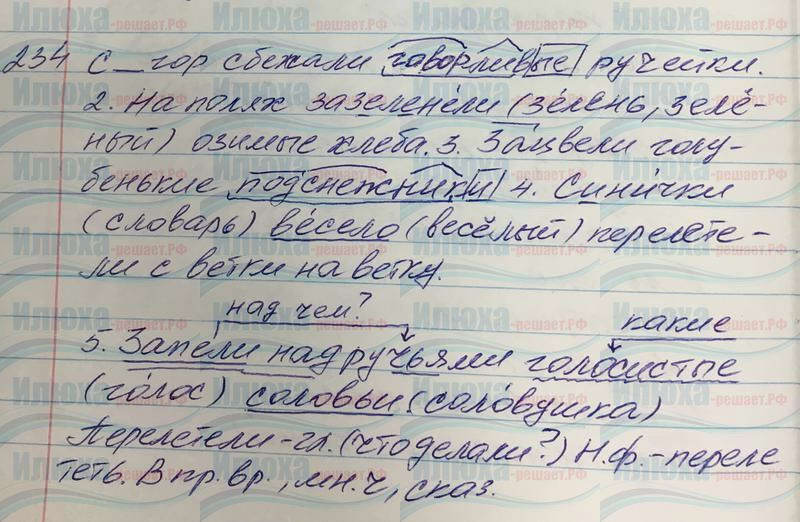 234 С_гор сбежали говорливые ручейки.
2. На полях зазеленели (зéлень, зелё-
ный) озимые хлеба. 3. Зацвели голу-
бенькие подснежники 4. Синички
(словарь) вéсело (весёлый) перелете-
ли с ветки на ветку.
над чем? какие
5. Запели над ручьями голосистые
(гóлос) соловьи (солóвушка)
Перелетели-гл. (что делали?) Н.ф.-переле
теть. В пр. вр., мн. ч, сказ.
Илюха-решает.РФ